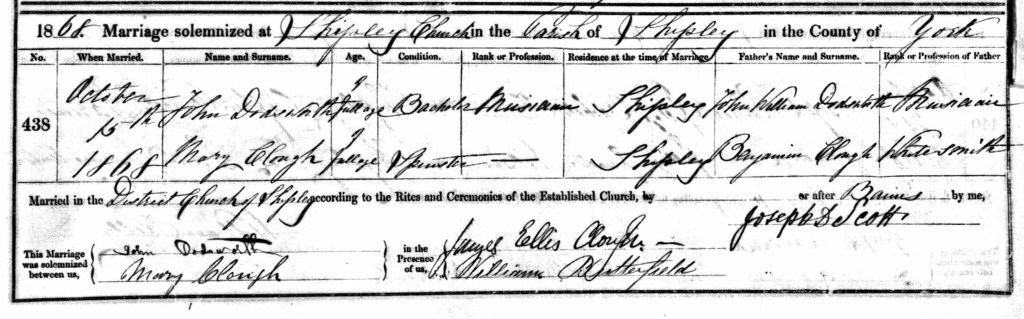 1868. Marriage solemnized at Shipley Church in the Parish of Shipley in the County of York
No. When Married. Name and Surname. Age. Condition. Rank or Profession. Residence at the time of Marriage Father's Name and Surname. Rank or Profession of Father
438 October 15th 1868 John Dodsworth full age Bachelor Musician Shipley John William Dodsworth Musician
Mary Clough full age Spinster — Shipley Benjamin Clough Whitesmith
Married in the District Church of Shipley according to the Rites and Ceremonies of the Established Church, by or after Banns by me,
Joseph D Scott
This Marriage was solemnized between us, John Dodsworth in the Presence of us, Samuel Ellis Clough
Mary Clough William Butterfield